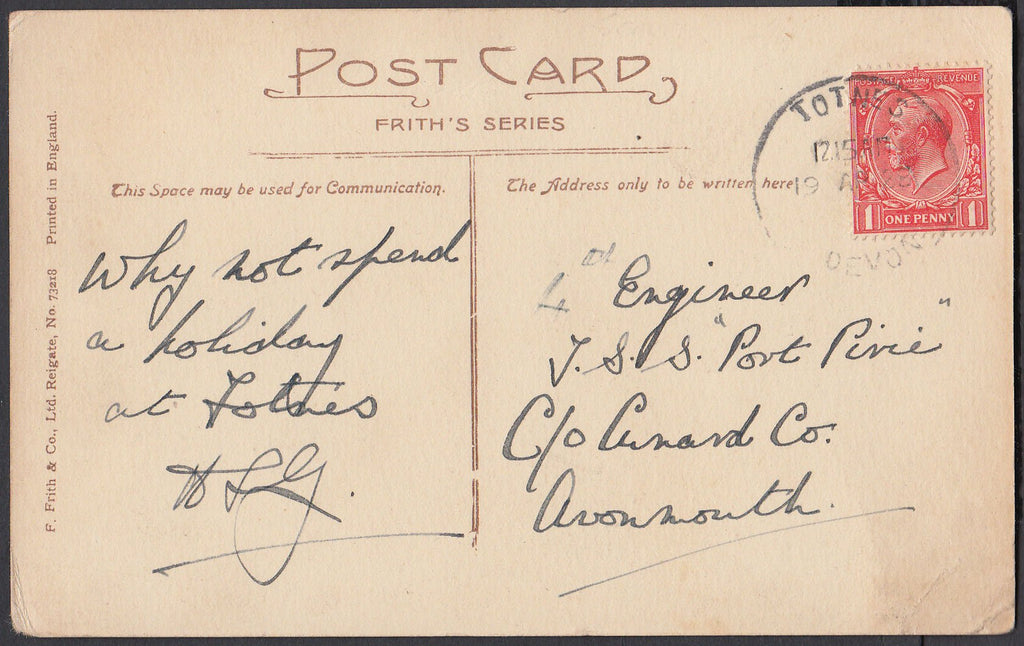 POST CARD
FRITH'S SERIES
This Space may be used for Communication.
The Address only to be written here
F. Frith & Co., Ltd. Reigate, No. 73218 Printed in England.
Why not spend
a holiday
at Totnes
4th Engineer
T.S.S. "Port Pirie"
C/o Cunard Co.
Avonmouth.
TOTNES
12.15 AM
19 AP
DEVON
REVENUE
1 ONE PENNY 1